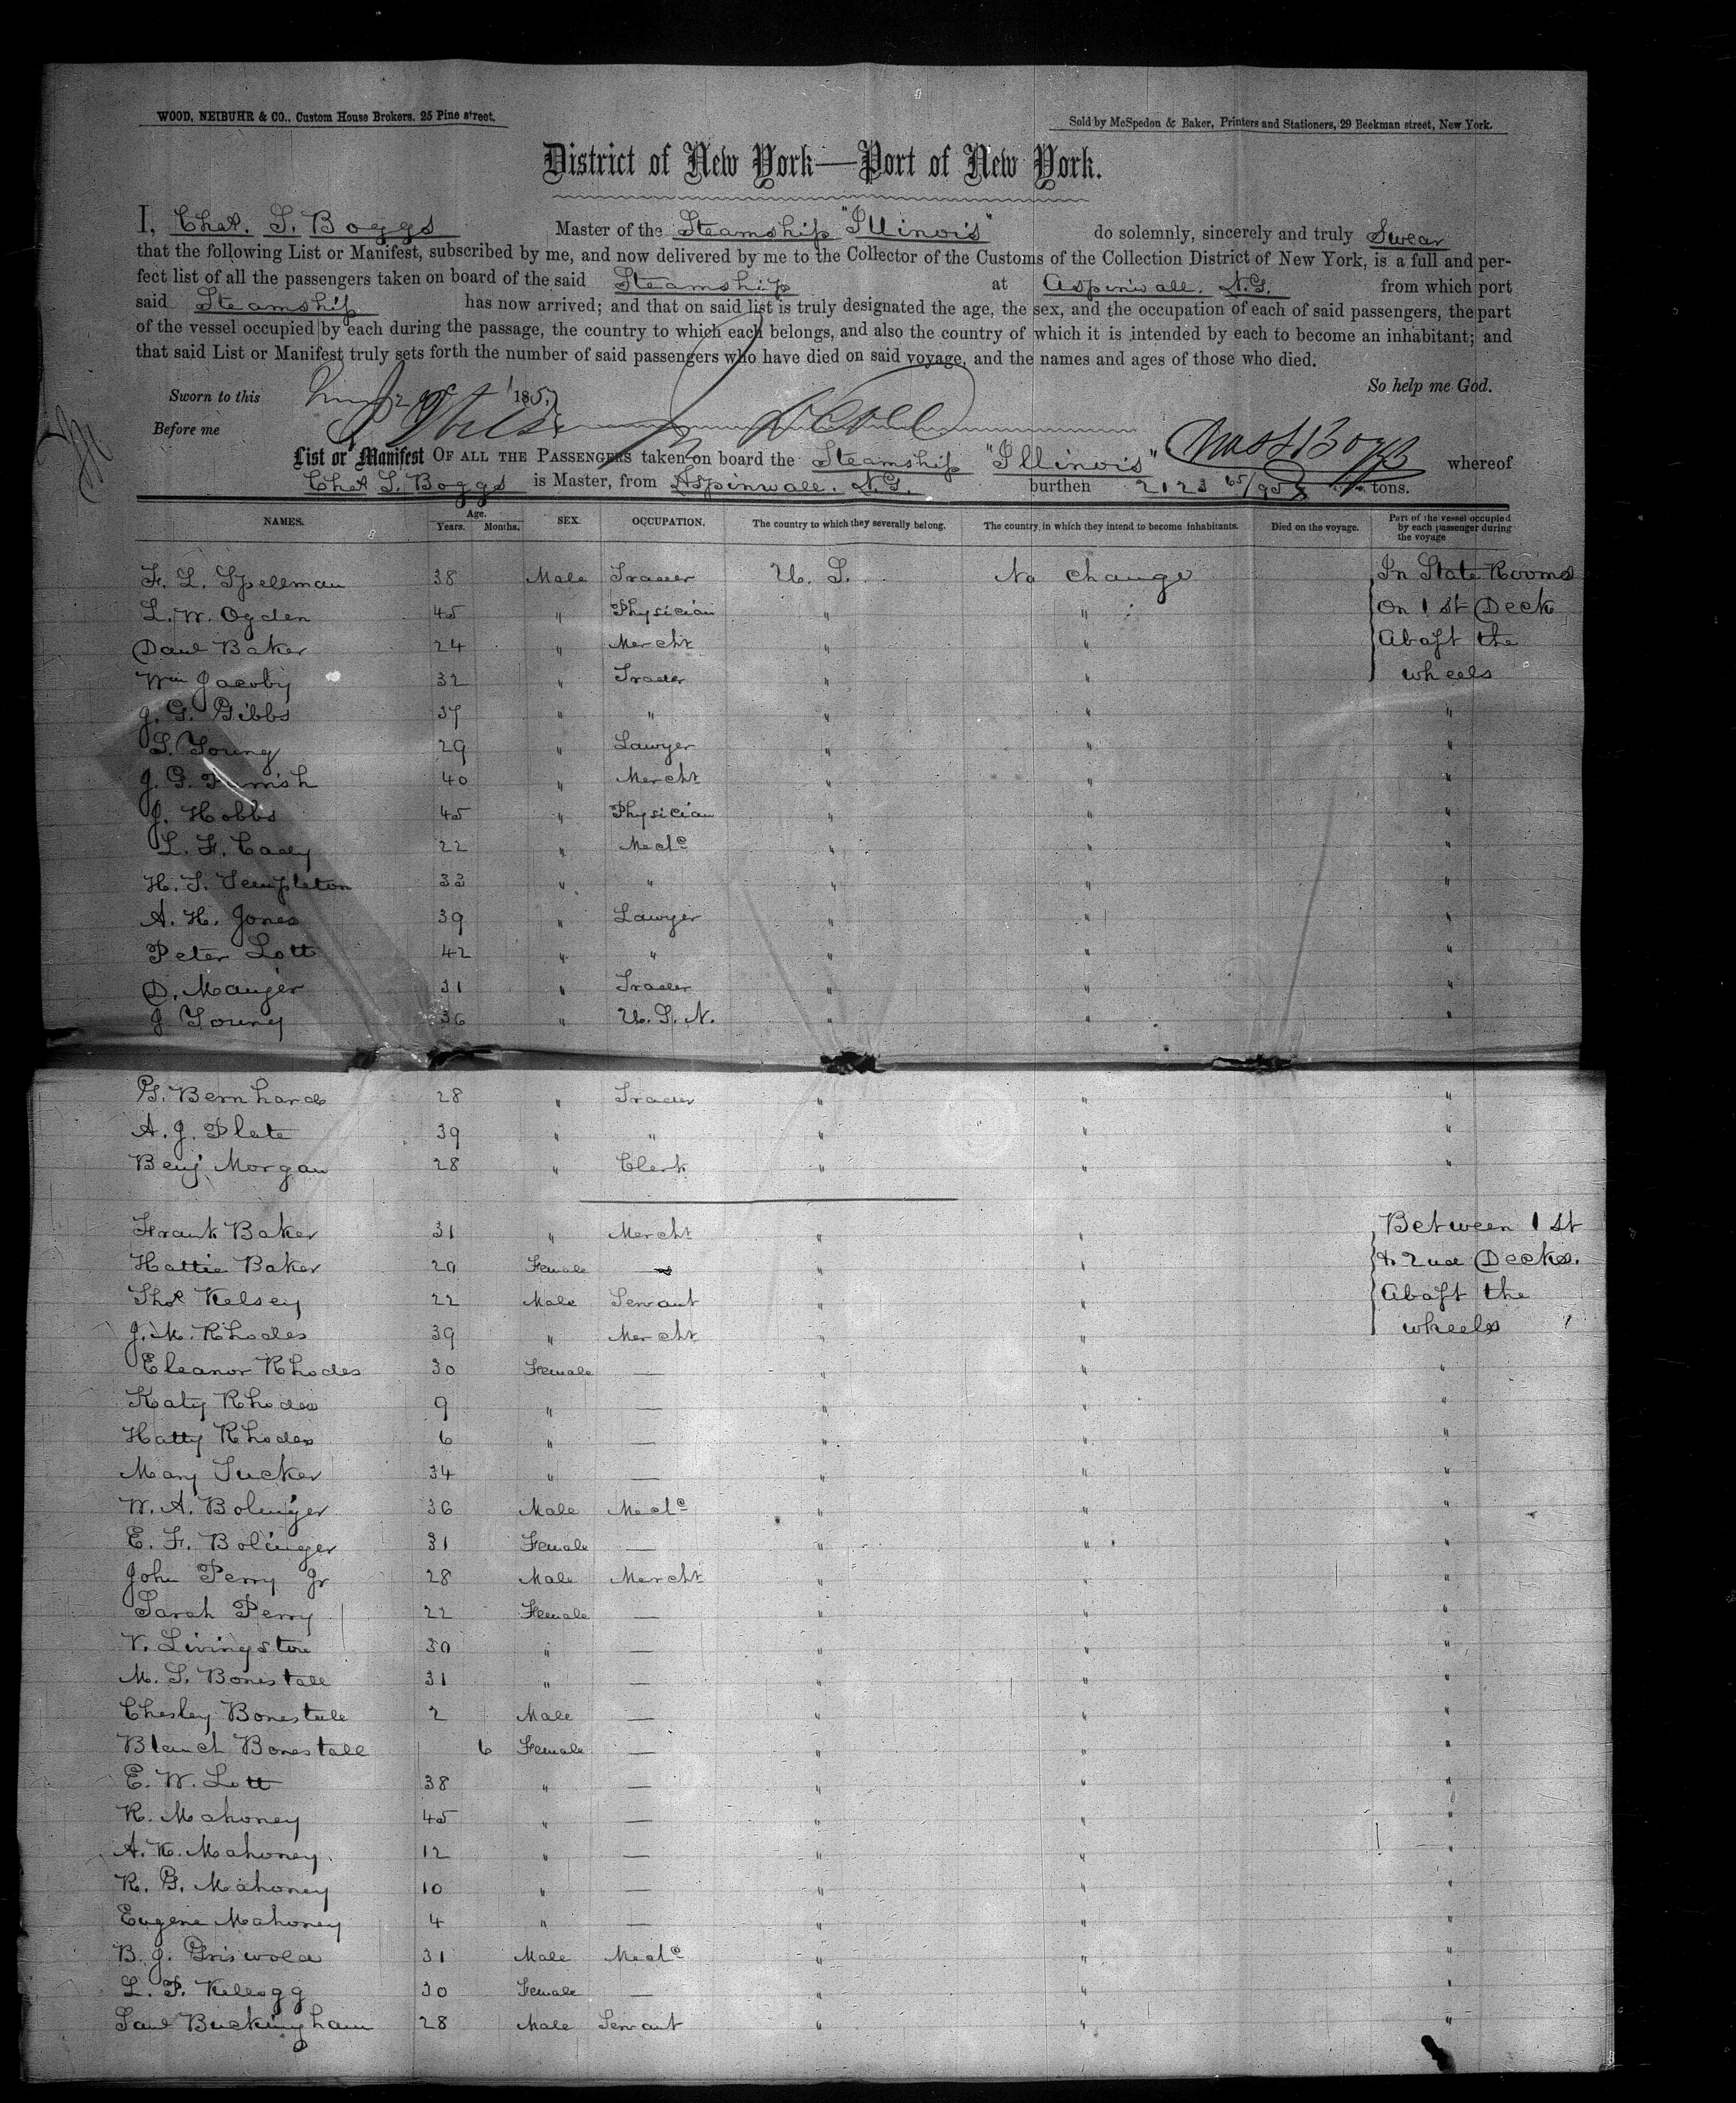 WOOD, NEIBUHR & CO., Custom House Brokers, 25 Pine street.
Sold by McSpedon & Baker, Printers and Stationers, 29 Beekman street, New York.
District of New York—Port of New York.
I, Chas. S. Boggs Master of the Steamship "Illinois" do solemnly, sincerely and truly Swear
that the following List or Manifest, subscribed by me, and now delivered by me to the Collector of the Customs of the Collection District of New York, is a full and per-
fect list of all the passengers taken on board of the said Steamship at Aspinwall. N.G. from which port
said Steamship has now arrived; and that on said list is truly designated the age, the sex, and the occupation of each of said passengers, the part
of the vessel occupied by each during the passage, the country to which each belongs, and also the country of which it is intended by each to become an inhabitant; and
that said List or Manifest truly sets forth the number of said passengers who have died on said voyage, and the names and ages of those who died.
So help me God.
Sworn to this 185
Before me
List or Manifest OF ALL THE PASSENGERS taken on board the Steamship "Illinois" whereof
Chas S. Boggs is Master, from Aspinwall. N.G. burthen 2123 65/95 tons.
NAMES. Age. Years. Months. SEX. OCCUPATION. The country to which they severally belong. The country in which they intend to become inhabitants. Died on the voyage. Part of the vessel occupied by each passenger during the voyage
F. L. Spellman 38 Male Trader U. S. No change In State Rooms
L. W. Ogden 45 " Physician " " On 1st Deck
Danl Baker 24 " Mercht " " Abaft the
Wm Jacoby 32 " Trader " " wheels
J. G. Gibbs 37 " " " " "
S. Young 29 " Lawyer " " "
J. G. 40 " Mercht " " "
J. Hobbs 45 " Physician " " "
L. F. Cady 22 " Mechc " " "
H. S. Templeton 33 " " " " "
A. H. Jones 39 " Lawyer " " "
Peter Lott 42 " " " " "
D. Mauger 31 " Trader " " "
J Young 36 " U. S. N. " " "
G. Bernhard 28 " Trader " " "
A. J. Plate 39 " " " " "
Benj Morgan 28 " Clerk " " "
Frank Baker 31 " Mercht " " Between 1st
Hattie Baker 20 Female — " " & 2nd Decks.
Thos Kelsey 22 Male Servant " " Abaft the
J. M. Rhodes 39 " Mercht " " wheels
Eleanor Rhodes 30 Female — " " "
Katy Rhodes 9 " — " " "
Hatty Rhodes 6 " — " " "
Mary Tucker 34 " — " " "
W. A. Bolinger 36 Male Mechc " " "
E. F. Bolinger 31 Female — " " "
John Perry Jr 28 Male Mercht " " "
Sarah Perry 22 Female — " " "
V. Livingston 30 " — " " "
M. S. Bonestall 31 " — " " "
Chesley Bonestall 2 Male — " " "
Blanch Bonestall 6 Female — " " "
E. W. Lott 38 " — " " "
R. Mahoney 45 " — " " "
A. K. Mahoney. 12 " — " " "
R. G. Mahoney 10 " — " " "
Eugene Mahoney 4 " — " " "
B. J. Griswold 31 Male Mechc " " "
L. P. Kellogg 30 Female — " " "
Saml Buckingham 28 Male Servant " " "